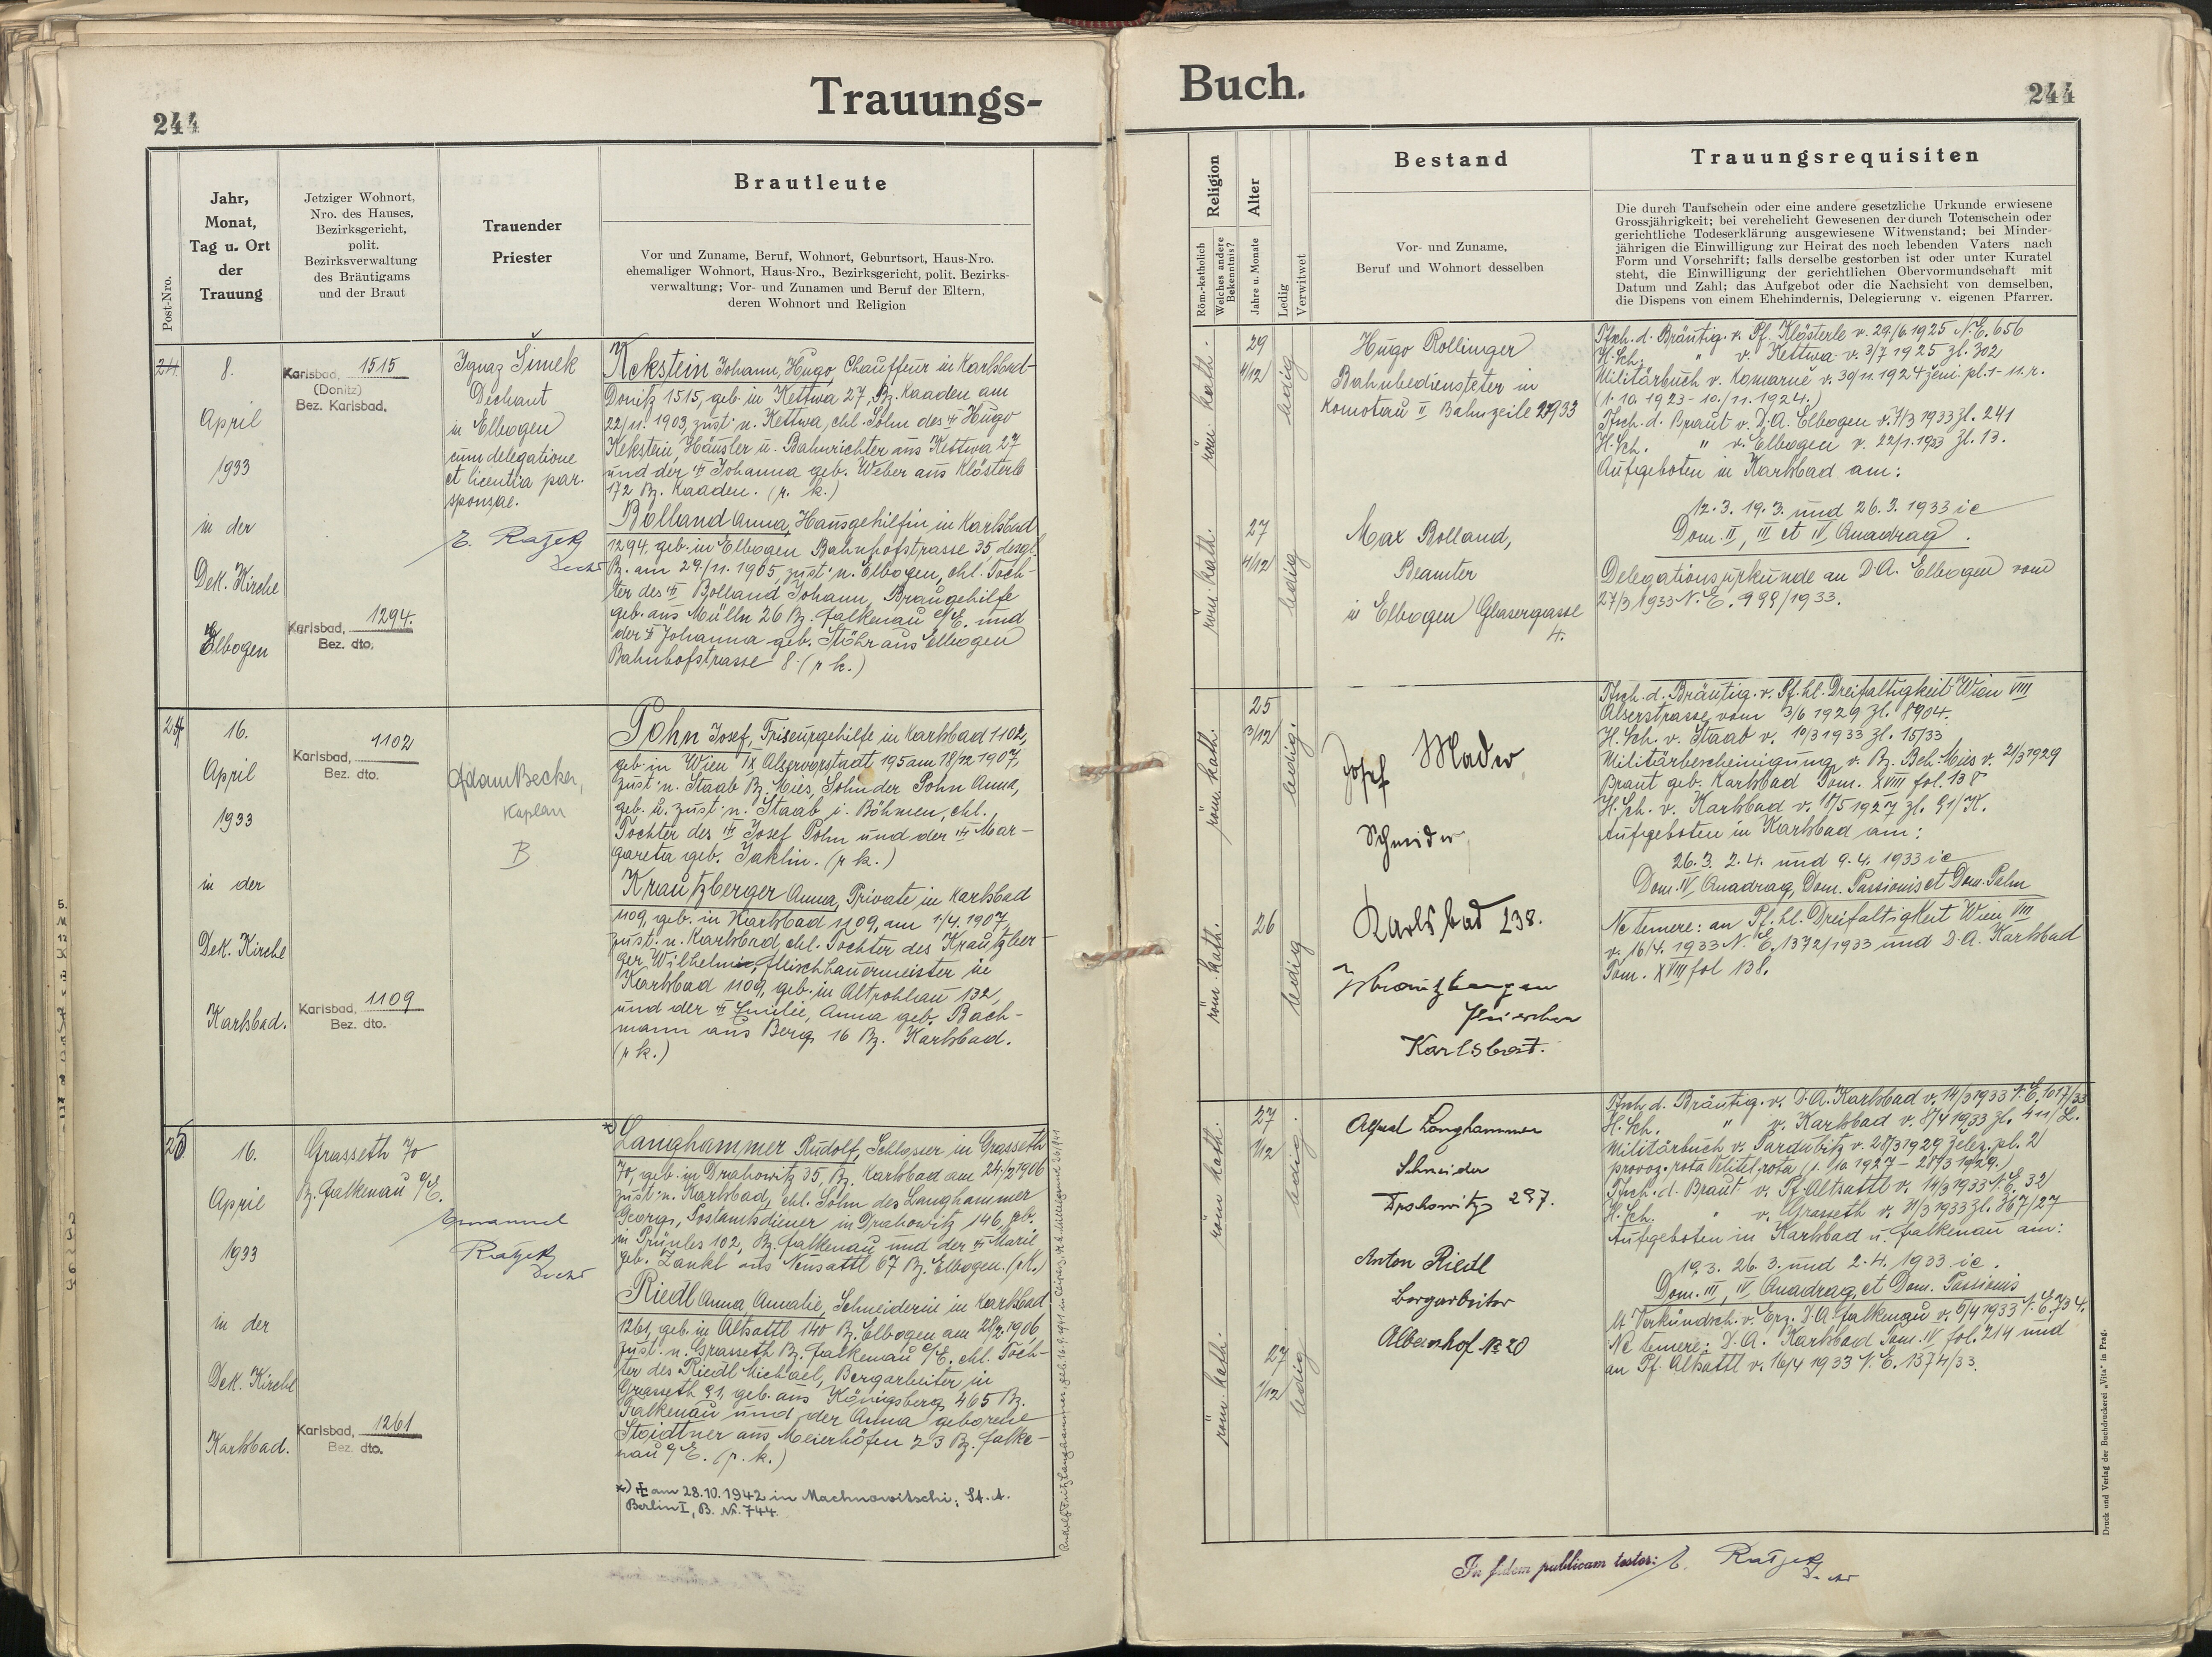 244
Trauungs-
Post-Nro.
Jahr,
Monat,
Tag u. Ort
der
Trauung
Jetziger Wohnort,
Nro. des Hauses,
Bezirksgericht,
polit.
Bezirksverwaltung
des Bräutigams
und der Braut
Trauender
Priester
Brautleute
Vor und Zuname, Beruf, Wohnort, Geburtsort, Haus-Nro.
ehemaliger Wohnort, Haus-Nro., Bezirksgericht, polit. Bezirks-
verwaltung; Vor- und Zunamen und Beruf der Eltern,
deren Wohnort und Religion
24.
8.
April
1933
in der
Dek. Kirche
Elbogen
Karlsbad, 1515
(Donitz)
Bez. Karlsbad.
Karlsbad, 1294.
Bez. dto.
Ignaz Šimek
Dechant
in Elbogen
cum delegatione
et licentia par.
sponsae.
E. Ratzek
Kekstein Johann, Hugo, Chauffeur in Karlsbad-
Donitz 1515, geb. in Kettwa 27, Bz. Kaaden am
22/11. 1903, zust. n. Kettwa, ehl. Sohn des Hugo
Kekstein, Häusler u. Bahnrichter aus Kettwa 27
und der Johanna geb. Weber aus Klösterle
172 Bz. Kaaden. (r. k.)
Bolland Anna, Hausgehilfin in Karlsbad
1294, geb. in Elbogen Bahnhofstrasse 35, desgl.
Bz. am 29./11. 1905, zust. n. Elbogen, ehl. Toch-
ter des Bolland Johann, Braugehilfe
geb. aus Mülln 26 Bz. Falkenau a/E. und
der Johanna geb. Stöhr aus Elbogen
Bahnhofstrasse 8. (r. k.)
16.
April
1933
in der
Dek. Kirche
Karlsbad.
Karlsbad, 1102
Bez. dto.
Karlsbad, 1109
Bez. dto.
Adam Becker,
Kaplan
B
Pohn Josef, Friseurgehilfe in Karlsbad 1102,
geb. in Wien IX Alservorstadt 195 am 18/12 1907,
zust. n. Staab Bz. Mies, Sohn der Pohn Anna,
geb. u. zust. n. Staab i. Böhmen, ehl.
Tochter des Josef Pohn und der Mar-
gareta geb. Jaklin. (r. k.)
Krautzberger Anna, Private in Karlsbad
1109, geb. in Karlsbad 1109, am 1/4. 1907,
zust. n. Karlsbad, ehl. Tochter des Krautzber-
ger Wilhelm, Fleischhauermeister in
Karlsbad 1109, geb. in Altrohlau 132,
und der Emilie, Anna geb. Bach-
mann aus Berg 16 Bz. Karlsbad.
(r. k.)
16.
April
1933
in der
Dek. Kirche
Karlsbad.
Grasseth 70
Bz. Falkenau a/E.
Karlsbad, 1261
Bez. dto.
Emanuel
Ratzek
Langhammer Rudolf, Schlosser in Grasseth
70, geb. in Drahowitz 35, Bz. Karlsbad am 24./2 1906
zust. n. Karlsbad, ehl. Sohn des Langhammer
Georg, Postamtsdiener in Drahowitz 146, geb.
in Prünles 102, Bz. Falkenau und der Marie
geb. Zankl aus Neusattl 67 Bz. Elbogen. (r. k.)
Riedl Anna, Amalie, Schneiderin in Karlsbad
1261, geb. in Altsattl 140 Bz. Elbogen am 28/2. 1906
zust. n. Grasseth Bz. Falkenau a/E. ehl. Toch-
ter des Riedl Michael, Bergarbeiter in
Grasseth 91, geb. aus Königsberg 465 Bz.
Falkenau und der Anna geborene
Stoidtner aus Meierhöfen 23 Bz. Falke-
nau a/E. (r. k.)
*) ✠ am 28.10.1942 in Machnowitschi; St. A.
Berlin I, B. Nr. 744.
Buch.
244
Religion
Röm.-katholisch
Welches andere
Bekenntnis?
Alter
Jahre u. Monate
Ledig
Verwitwet
Bestand
Vor- und Zuname,
Beruf und Wohnort desselben
Trauungsrequisiten
Die durch Taufschein oder eine andere gesetzliche Urkunde erwiesene
Grossjährigkeit; bei verehelicht Gewesenen der durch Totenschein oder
gerichtliche Todeserklärung ausgewiesene Witwenstand; bei Minder-
jährigen die Einwilligung zur Heirat des noch lebenden Vaters nach
Form und Vorschrift; falls derselbe gestorben ist oder unter Kuratel
steht, die Einwilligung der gerichtlichen Obervormundschaft mit
Datum und Zahl; das Aufgebot oder die Nachsicht von demselben,
die Dispens von einem Ehehindernis, Delegierung v. eigenen Pfarrer.
röm. kath.
29
4/12
ledig
Hugo Rollinger
Bahnbediensteter in
Komotau II Bahnzeile 2933
röm. kath.
27
4/12
ledig
Max Bolland,
Beamter
in Elbogen Glasergasse
4.
Tfsch. d. Bräutig. v. Pf. Klösterle v. 29./6. 1925 N.E. 656
H. Sch. " v. Kettwa v. 3/7 1925 zl. 302
Militärbuch v. Komarně v. 30/11. 1924 ženi. pl. 1 - 11. r.
(1. 10. 1923 - 10./11. 1924.)
Tfsch. d. Braut v. D.A. Elbogen v. 7/3 1933 zl. 241
H. Sch. " v. Elbogen v. 22/1. 1933 zl. 13.
Aufgeboten in Karlsbad am:
12. 3. 19. 3. und 26. 3. 1933 ie
Dom. II, III et IV, Quadrag.
Delegationsurkunde an D.A. Elbogen vom
27/3 1933 N.E. 999/1933.
röm. kath.
25
3/12
ledig.
Josef Mader,
Schneider,
Karlsbad 138.
röm. kath.
26
ledig
W Krautzberger
Fleischer
Karlsbad.
Tfsch. d. Bräutig. v. Pf. hl. Dreifaltigkeit Wien VIII
Alserstrasse vom 3/6 1929 zl. 8904.
H. Sch. v. Staab v. 10/3 1933 zl. 15/33
Militärbescheinigung v. Bz. Beh. Mies v. 21/3 1929
Braut geb. Karlsbad Tom. XVIII fol. 138
H. Sch. v. Karlsbad v. 18/5 1927 zl. 91/K.
Aufgeboten in Karlsbad am:
26. 3. 2. 4. und 9. 4. 1933 ie
Dom. IV, Quadrag, Dom. Passionis et Dom. Palm
Ne temere: an Pf. hl. Dreifaltigkeit Wien VIII
v. 16/4. 1933 N.E. 1372/1933 und D.A. Karlsbad
Tom. XVIII fol 138.
röm. kath.
27
1/12
ledig.
Alfred Langhammer
Schneider
Drahowitz 297.
röm. kath.
27
1/12
ledig
Anton Riedl
Bergarbeiter
Albernhof № 20
Tfsch. d. Bräutig. v. D.A. Karlsbad v. 14/3 1933 N.E. 1017/33
H. Sch. " v. Karlsbad v. 8/4 1933 zl. 411/L.
Militärbuch v. Pardubitz v. 28/3 1929 želez. pl. 2
provoz. rota Velitel. rota (1. 10. 1927 - 28/3 1929.)
Tfsch. d. Braut v. Pf. Altsattl v. 14/3 1933 N.E. 32
H. Sch. " v. Grasseth v. 31/3 1933 zl. 367/27
Aufgeboten in Karlsbad u. Falkenau am:
19. 3. 26. 3. und 2. 4. 1933 ie.
Dom. III, IV, Quadrag, et Dom. Passionis
lt Verkündsch. v. Erz. D.A. Falkenau v. 5/4 1933 N.E. 734.
Ne temere: D.A. Karlsbad Tom. IV fol. 214 und
an Pf. Altsattl v. 16/4 1933 N.E. 1374/33.
In fidem publicam testor: E. Ratzek
Druck und Verlag der Buchdruckerei „Vita" in Prag.